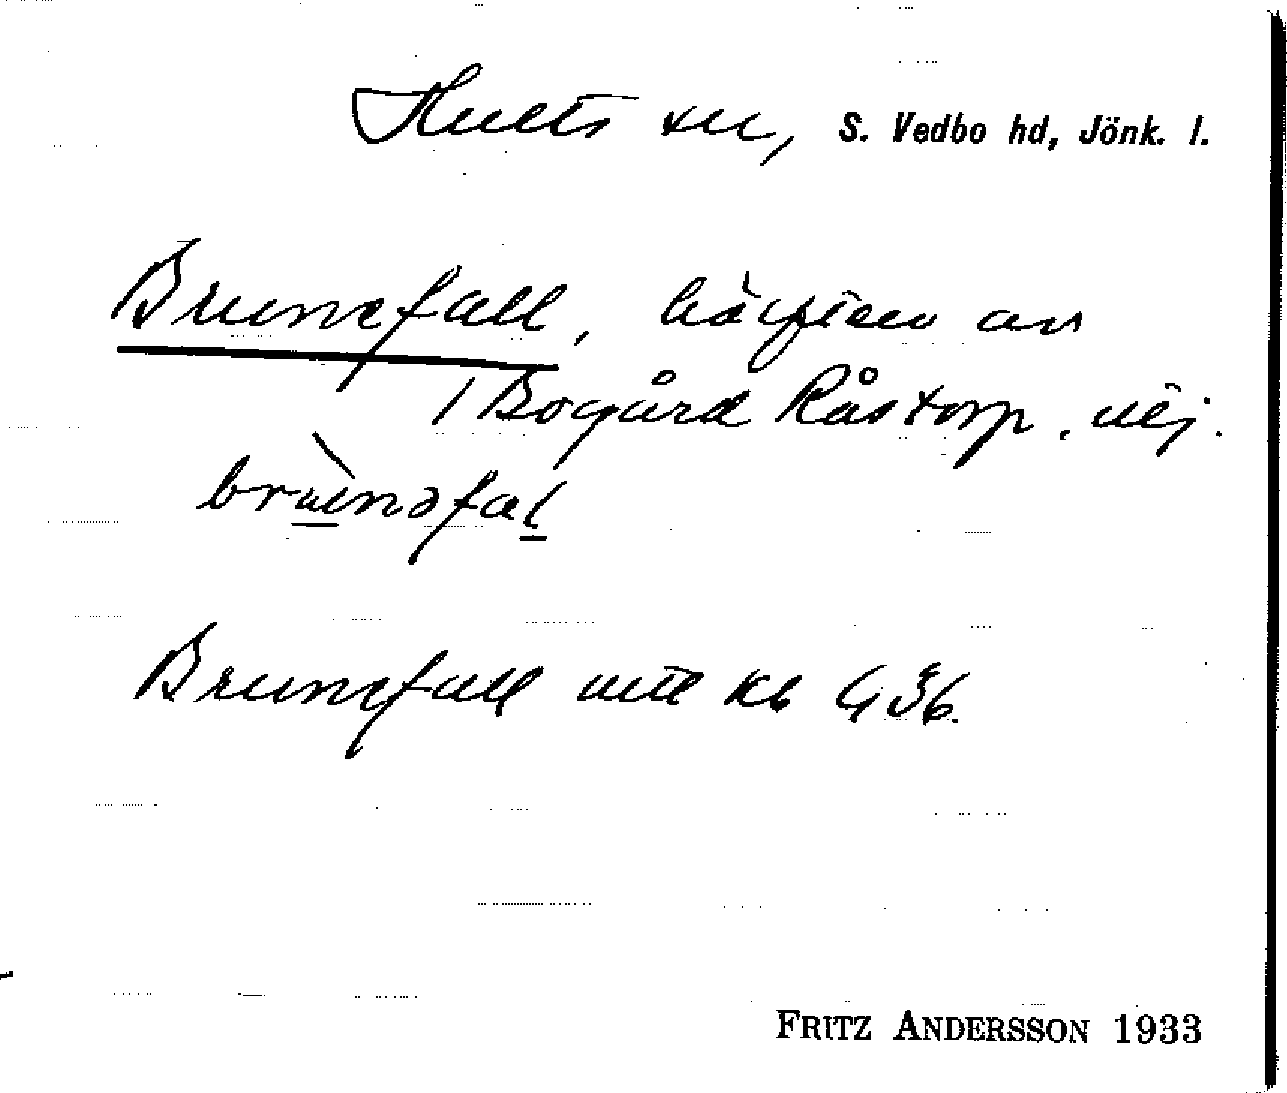 Hults sn, S. Vedbo hd, Jönk. l.
Brunefall, av
1 Bogård Råstorp, ej.
brùnəfal
Brunefall utt kb G 36.
FRITZ ANDERSSON 1933